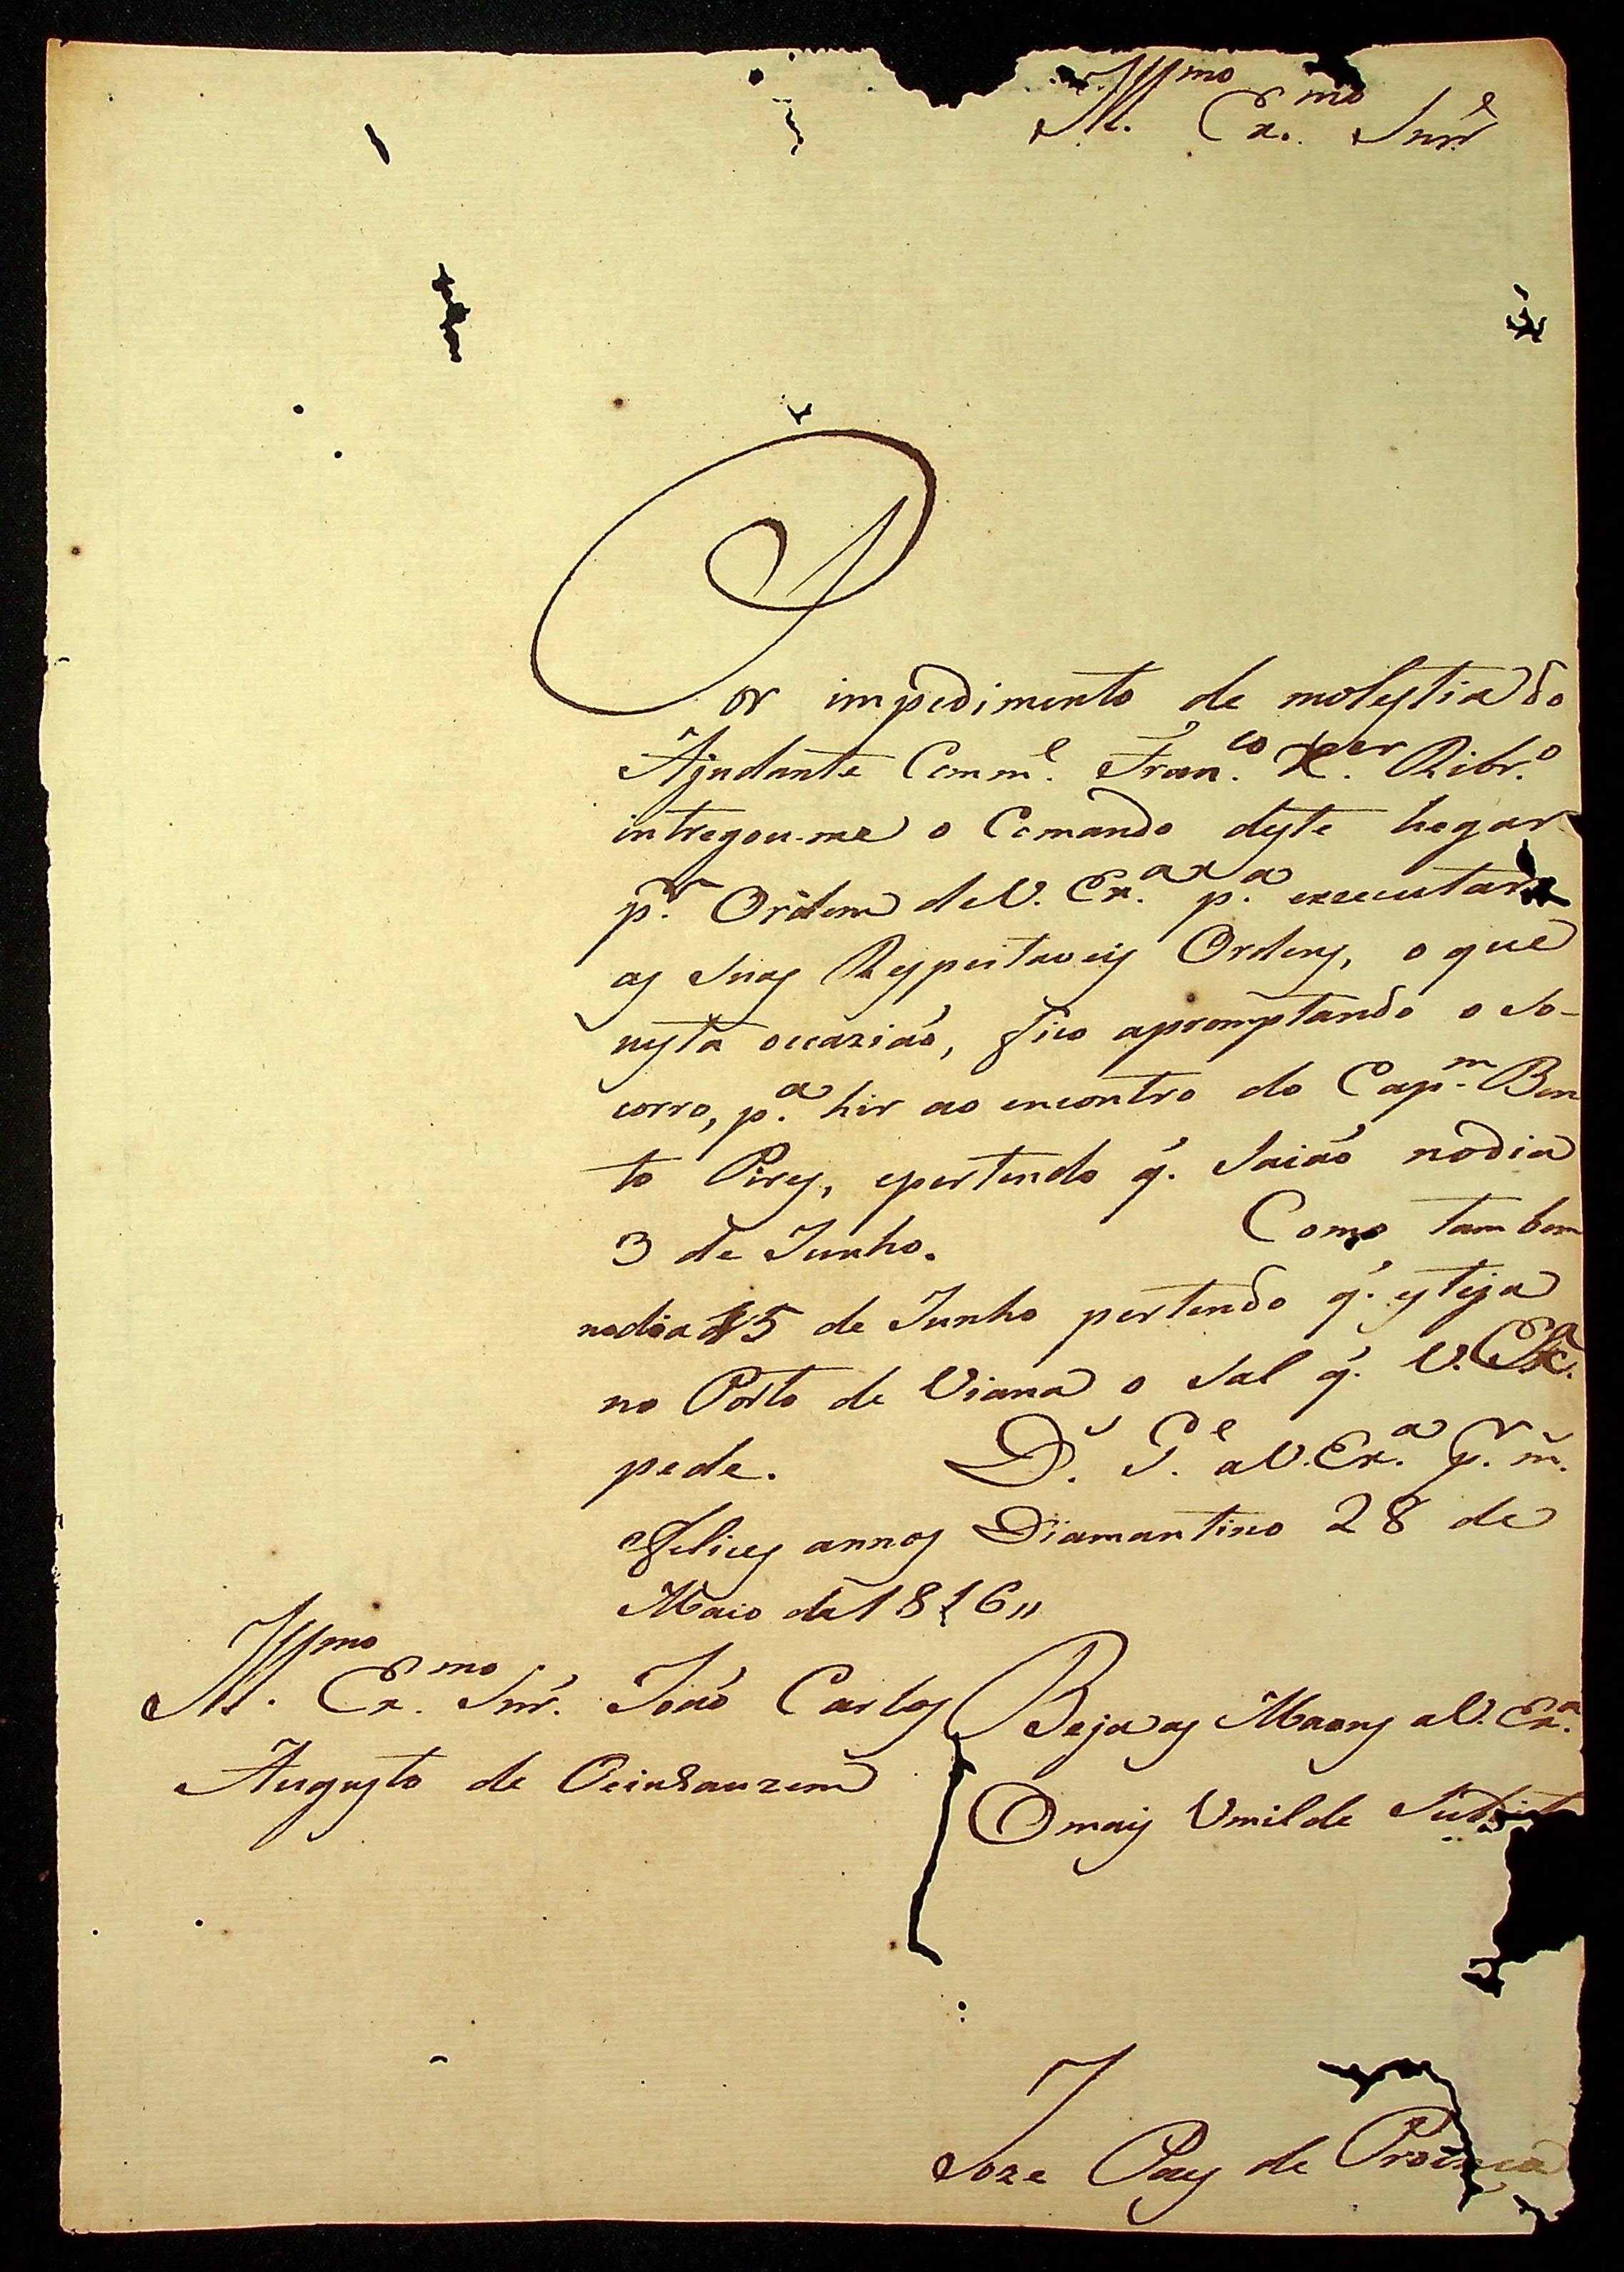 Ill.mo Ex.mo Snr̃e
Por impedimento de molestia do
Ajudante Comm.e Fran.co X.er Ribr.o
intregou-me o Comando deste Lugar
p.r Ordem de V. Ex.a p.a executar
as Suas Respeitaveis Ordens, o que
nesta occazião, fico apromptando o So-
corro, p.a hir ao encontro do Cap.m Ben
to Pires, epertendo q̃. Saião nodia
3 de Junho. Como tambem
nodia 15 de Junho pertendo q̃. esteja
no Porto de Viana o Sal q̃. V. Ex.
pede. D.s G.e aV. Ex.a p.r m̃.
felices annos Diamantino 28 de
Maio de 1816,,
Ill.mo Ex.mo Snr̃. João Carlos
Augusto de Oeinhauzem
Beja as Maons aV. Ex.a
Omais Umilde Subdit
Joze Paes de